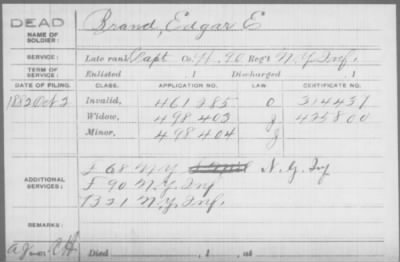 DEAD
NAME OF SOLDIER:
Brand, Edgar E
SERVICE:
Late rank Capt Co. H. 90 Reg't N.Y. Inf.
TERM OF SERVICE:
Enlisted , 1 Discharged , 1
DATE OF FILING. CLASS. APPLICATION NO. LAW. CERTIFICATE NO.
1882 Oct 2 Invalid, 461285 C 214437
Widow, 498403 g 425800
Minor, 498404 g
ADDITIONAL SERVICES:
F 68 N.Y. N.G. Inf
F 90 N.Y. Inf
B 321 N.Y. Inf.
REMARKS:
Died , 1 , at